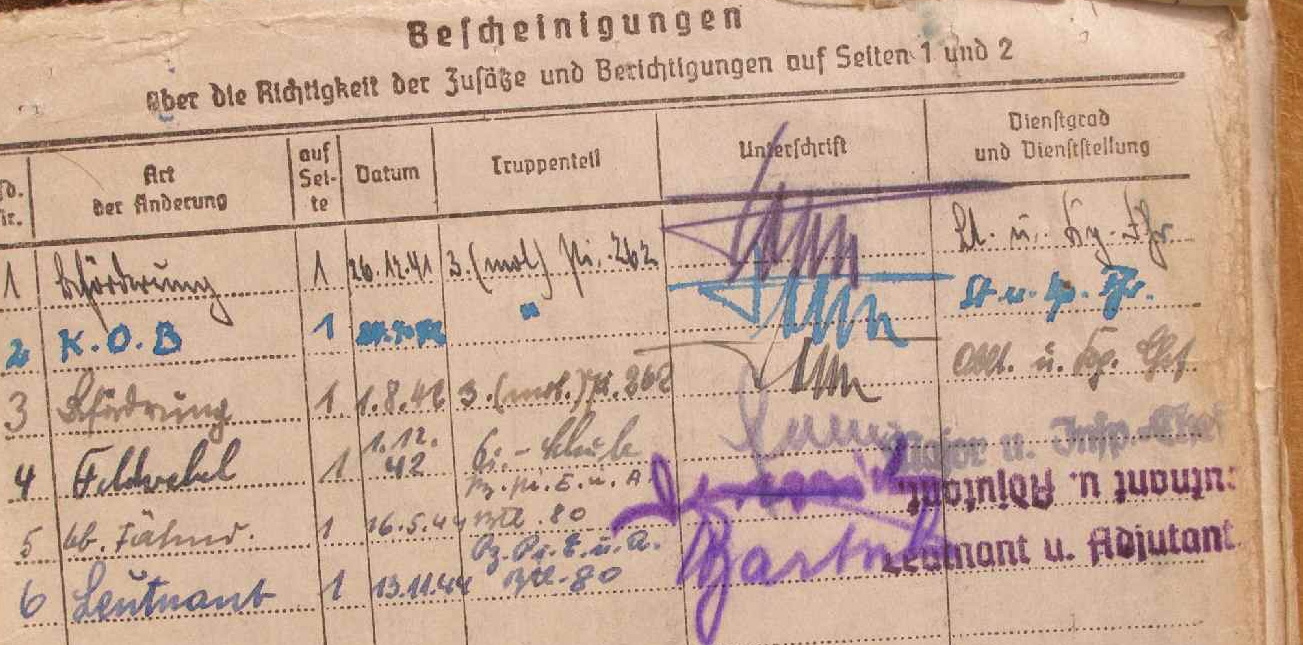 Bescheinigungen
über die Richtigkeit der Zusätze und Berichtigungen auf Seiten 1 und 2
Art der Änderung auf Sei-te Datum Truppenteil Unterschrift Dienstgrad und Dienststellung
1 Beförderung 1 26.12.41 3.(mot) Pi. 262 Lt. u. Kp.-Fhr.
2 K.O.B 1 " Lt u. Kp. Fhr.
3 Beförderung 1 1.8.42 3.(mot.) Pi. 262 Oblt. u. Kp. Chef
4 Feldwebel 1 1.12.42 Pi.-Schule Major u. Insp.-Chef
5 1 16.5.44 Pz. Pi. E. u. A. Btl. 80 Leutnant u. Adjutant
6 Leutnant 1 13.11.44 Pz. Pi. E. u. A. Btl. 80 Leutnant u. Adjutant